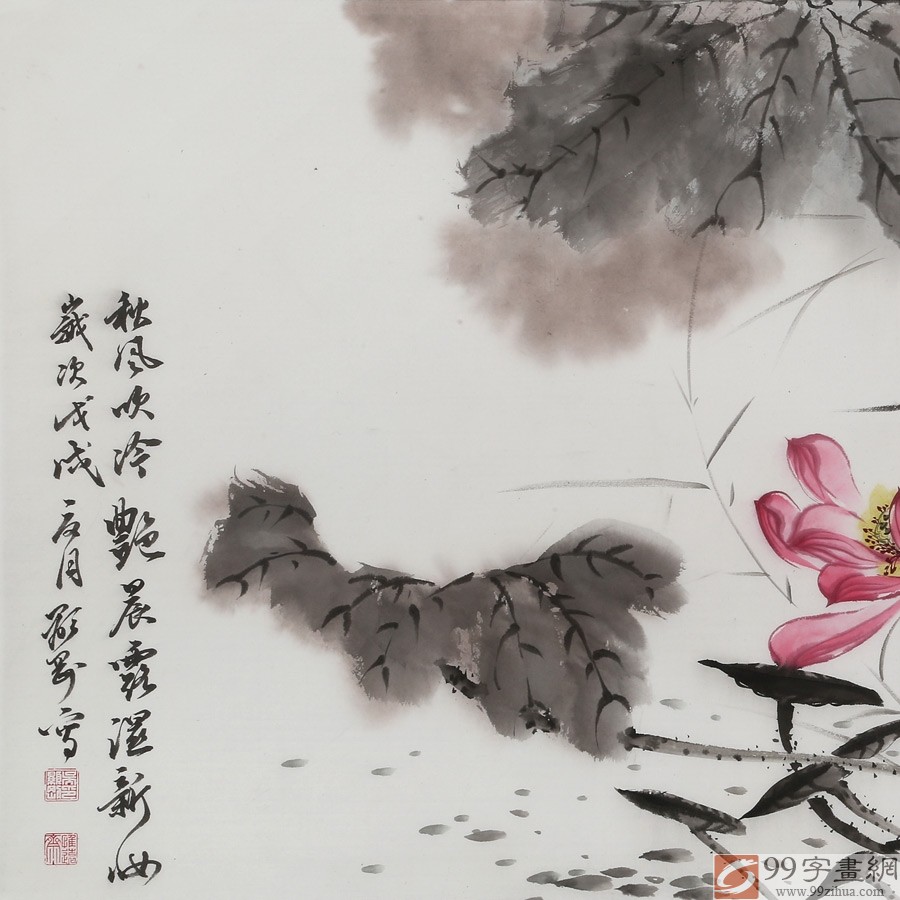 秋风吹冷艷晨露湿新妆
歲次戊戌夏月顕刚写
99字畫網
www.99zihua.com